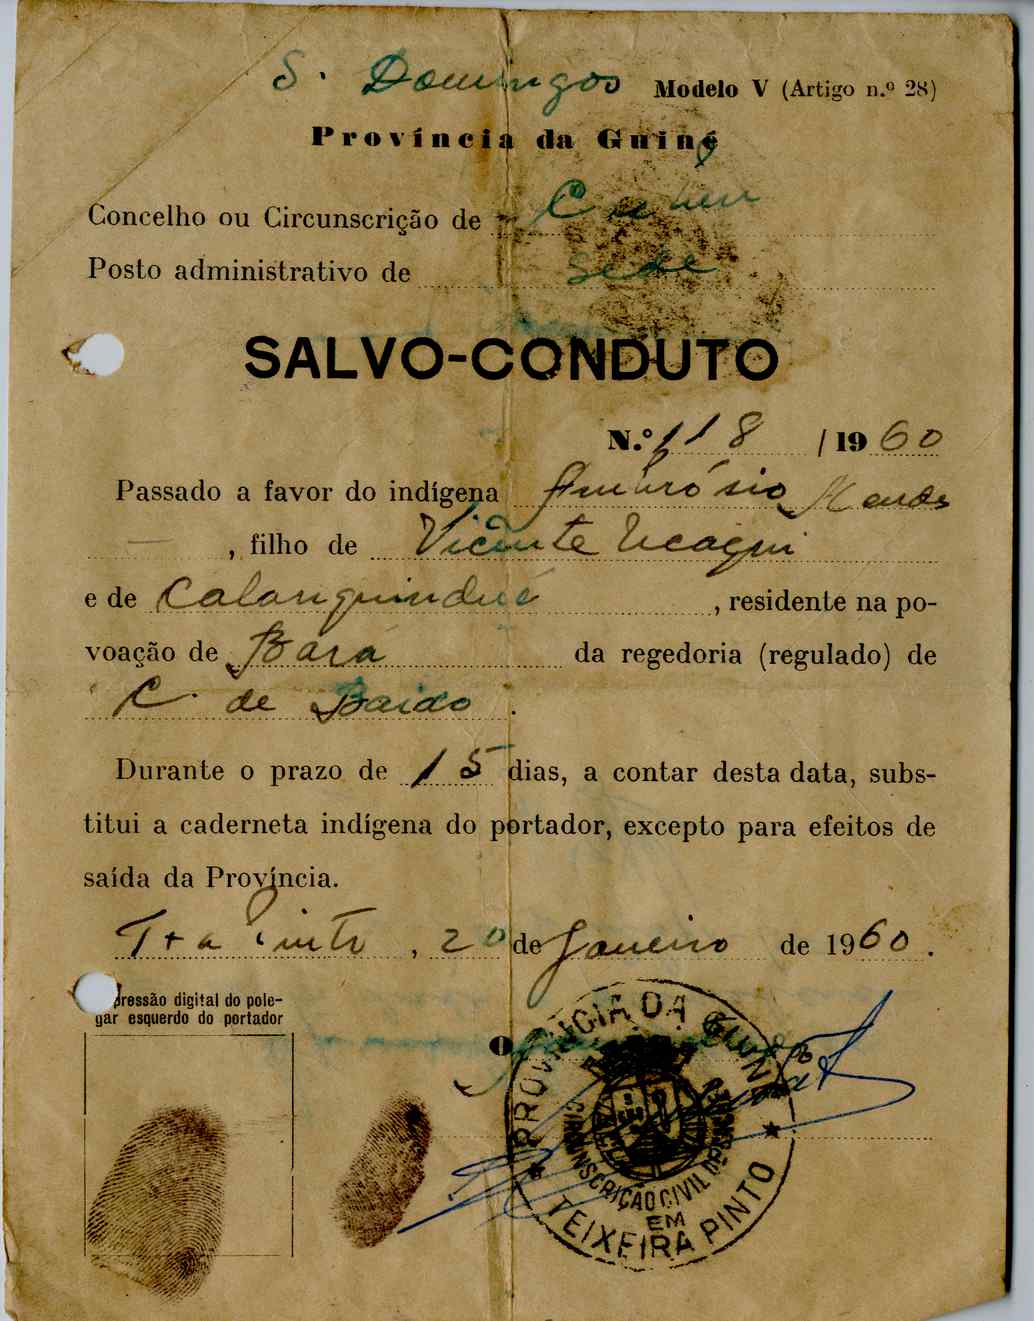 S. Domingos Modelo V (Artigo n.º 28)
Província da Guiné
Concelho ou Circunscrição de
Posto administrativo de Sede
SALVO-CONDUTO
N.º 118 / 1960
Passado a favor do indígena Ambrósio Mendes
, filho de Vicente Ucaqui
e de Calanquindué , residente na po-
voação de Bará da regedoria (regulado) de
C. de Baixo .
Durante o prazo de 15 dias, a contar desta data, subs-
titui a caderneta indígena do portador, excepto para efeitos de
saída da Província.
Txa Pinto , 20 de Janeiro de 1960 .
pressão digital do pole-
gar esquerdo do portador
O
PROVÍNCIA DA GUINÉ
CIRCUNSCRIÇÃO CIVIL
EM
TEIXEIRA PINTO